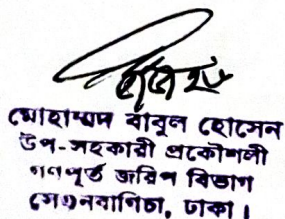 মোহাম্মদ বাবুল হোসেন
উপ-সহকারী প্রকৌশলী
গনপূর্ত জরিপ বিভাগ
সেগুনবাগিচা, ঢাকা।